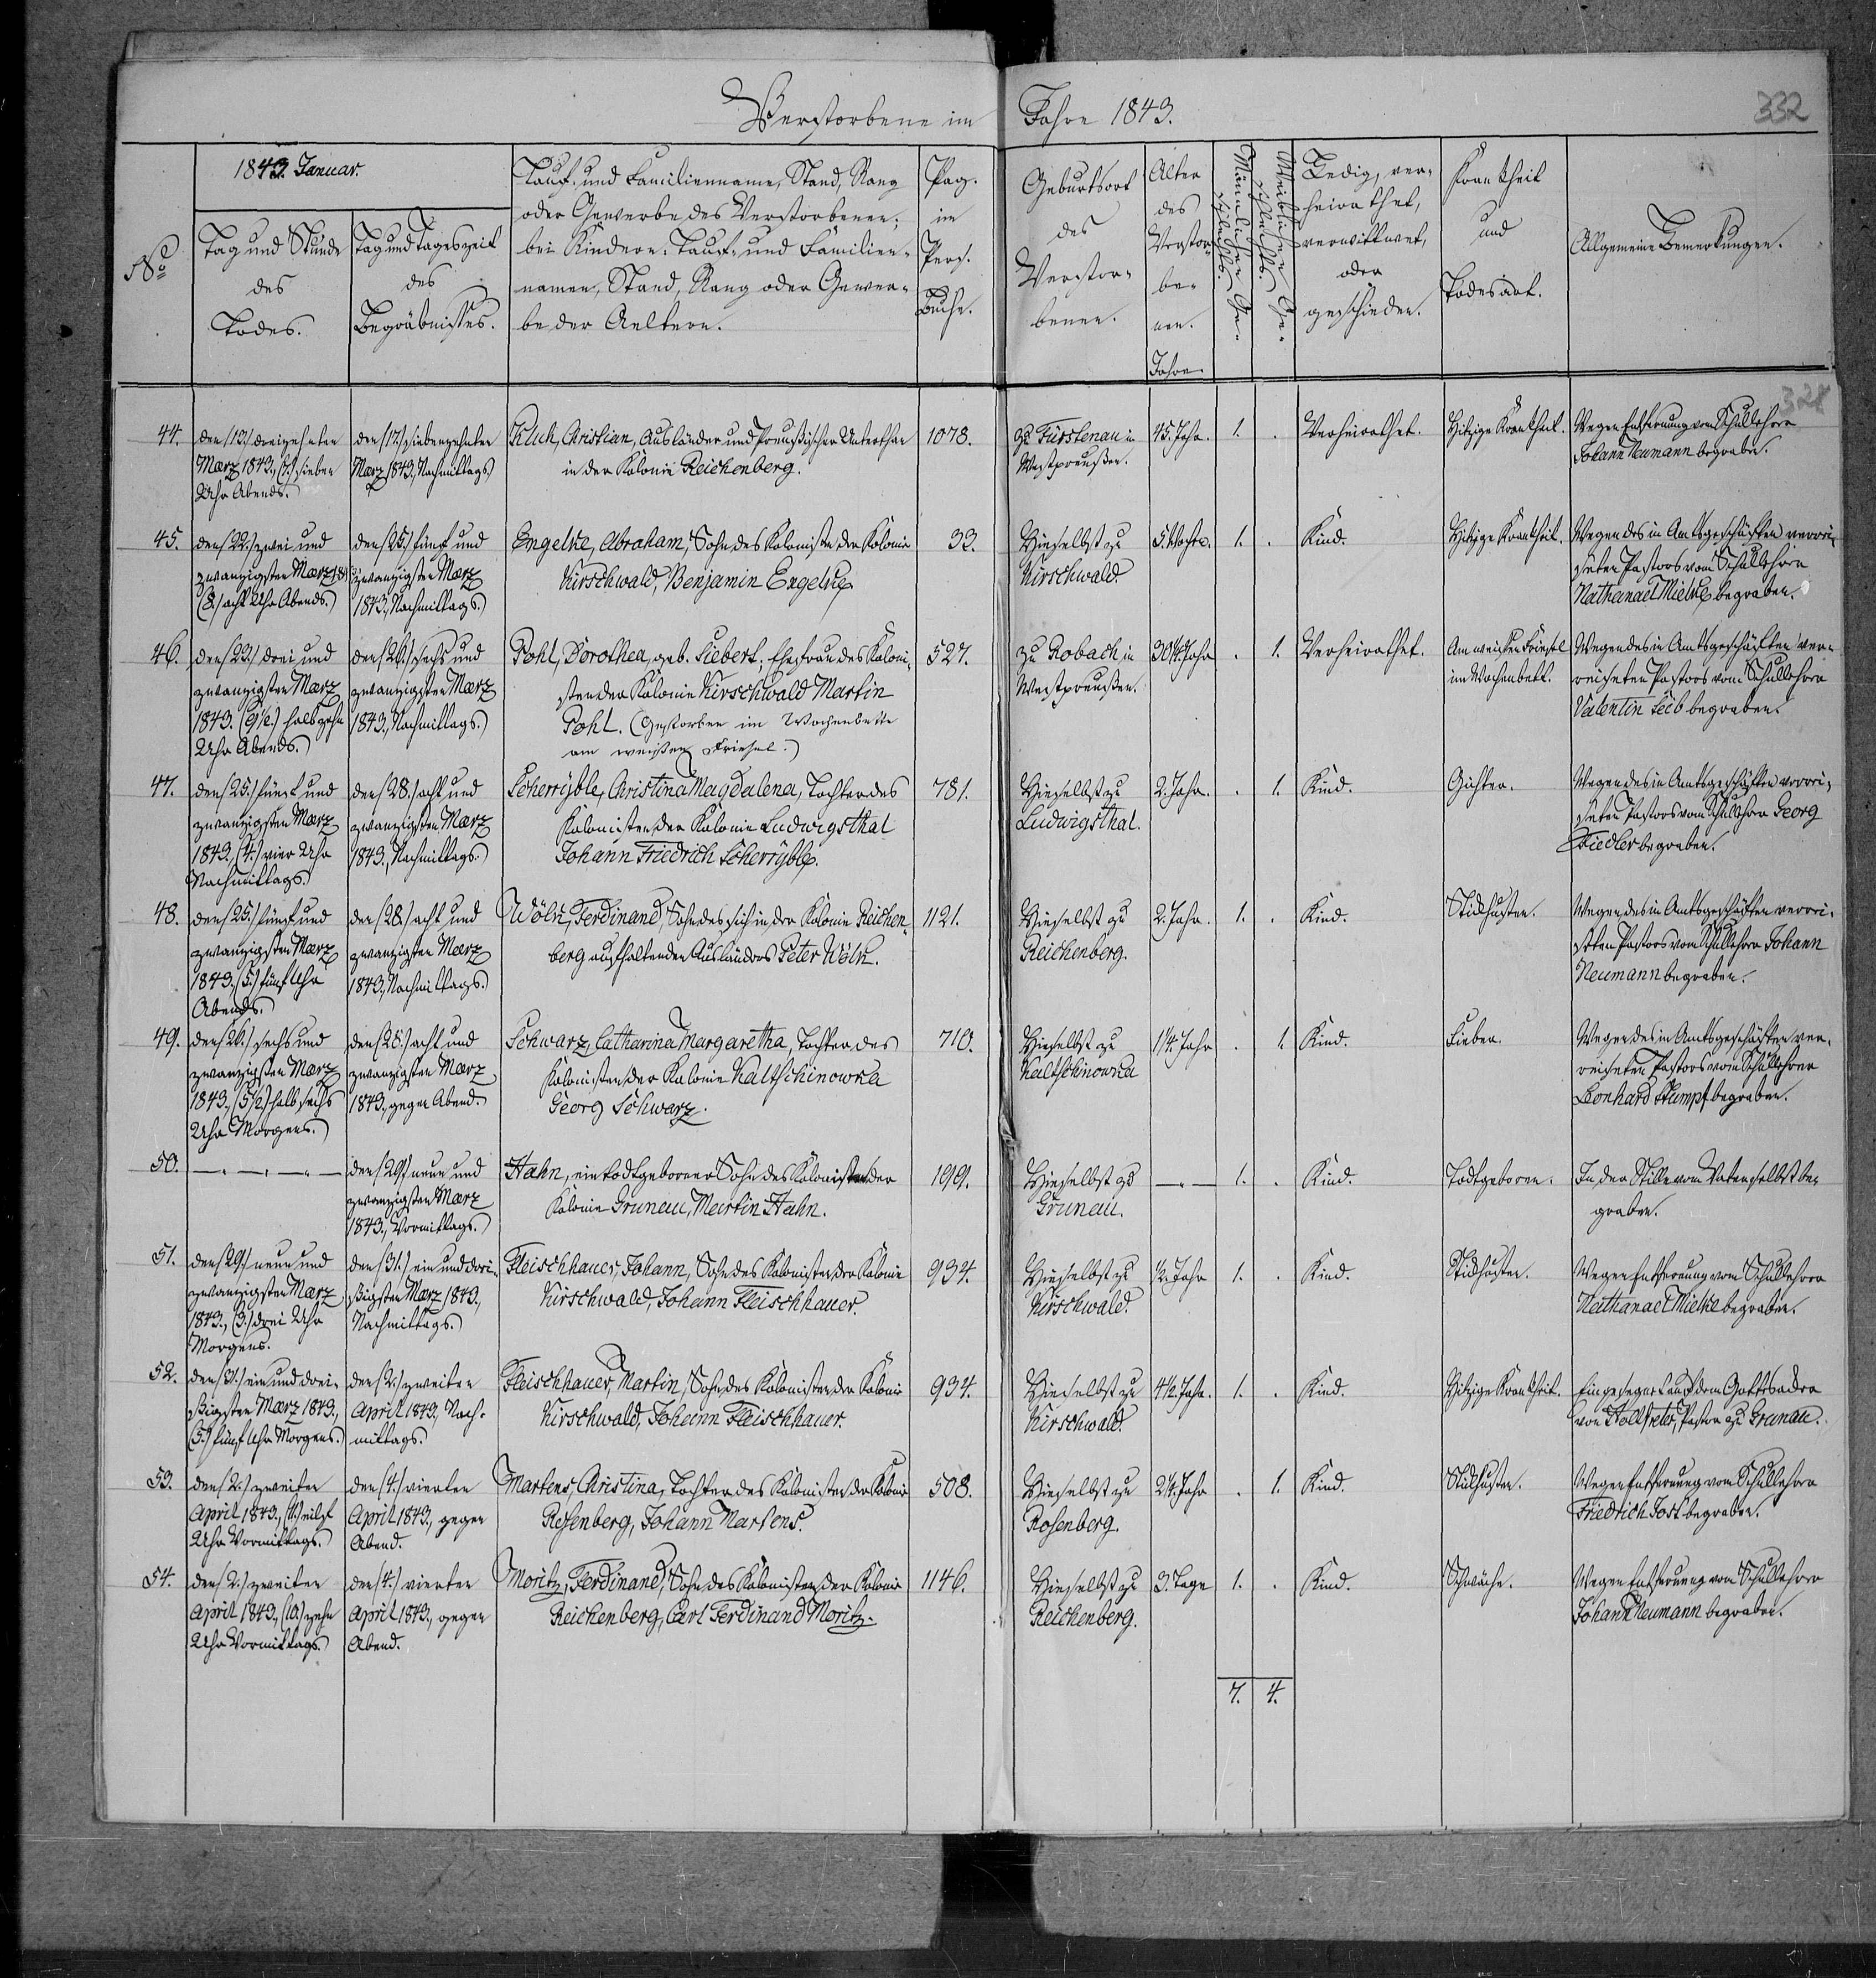 Verstorbene im Jahre 1843.
332
1843. Januar.
No
Tag und Stunde
des
Todes.
Tag und Tageszeit
des
Begräbnisses.
Tauf- und Familienname, Stand, Rang
oder Gewerbe des Verstorbenen;
bei Kindern: Tauf- und Familien-
namen, Stand, Rang oder Gewer-
be der Aeltern.
Pag.
im
Pers.
Buche.
Geburtsort
des
Verstor-
benen.
Alter
des
Verstor-
be-
nen.
Jahre.
Männlichen Ge-
schlechts.
Weiblichen Ge-
schlechts.
Ledig, ver-
heirathet,
verwittwet,
oder
geschieden.
Krankheit
und
Todesart.
Allgemeine Bemerkungen.
328
44.
den (13.) dreizehnten
Maerz 1843., (7.) sieben
Uhr Abends.
den (17.) siebenzehnten
Maerz 1843., Nachmittags.
Kluck, Christian, Ausländer und Preußischer Unterthan
in der Kolonie Reichenberg.
1078.
zu Fürstenau in
Westpreußen.
45. Jahr.
1.
.
Verheirathet.
Hitzige Krankheit.
Wegen Entfernung vom Schullehrer
Johann Neumann begraben.
45.
den (22.) zwei und
zwanzigsten Maerz 184
(8.) acht Uhr Abends.
den (25.) fünf und
zwanzigsten Maerz
1843., Nachmittags.
Engelke, Abraham, Sohn des Kolonisten der Kolonie
Kirschwald, Benjamin Engelke.
33.
Hieselbst zu
Kirschwald.
5. Woche.
1.
.
Kind.
Hitzige Krankheit.
Wegen des in Amtsgeschäften verrei-
seten Pastors vom Schullehrer
Nathanael Mielke begraben.
46.
den (23.) drei und
zwanzigsten Maerz
1843. (9½.) halb zehn
Uhr Abends.
den (26.) sechs und
zwanzigsten Maerz
1843., Nachmittags.
Pohl, Dorothea, geb. Siebert; Ehefrau des Koloni-
sten der Kolonie Kirschwald Martin
Pohl. (Gestorben im Wochenbette
am weißen Friesel.)
527.
zu Robach in
Westpreußen.
30¼. Jahr
.
1.
Verheirathet.
Am weißen Friesel
im Wochenbett.
Wegen des in Amtsgeschäften ver-
reiseten Pastors vom Schullehrer
Valentin Leib begraben.
47.
den (25.) fünf und
zwanzigsten Maerz
1843., (4.) vier Uhr
Nachmittags.
den (28.) acht und
zwanzigsten Maerz
1843., Nachmittags.
Scherryble, Christina Magdalena, Tochter des
Kolonisten der Kolonie Ludwigsthal
Johann Friedrich Scherryble.
781.
Hieselbst zu
Ludwigsthal.
2. Jahr.
.
1.
Kind.
Gichter.
Wegen des in Amtsgeschäften verrei-
seten Pastors vom Schullehrer Georg
Fiedler begraben.
48.
den (25.) fünf und
zwanzigsten Maerz
1843., (5.) fünf Uhr
Abends.
den (28.) acht und
zwanzigsten Maerz
1843., Nachmittags.
Wölk, Ferdinand, Sohn des sich in der Kolonie Reichen-
berg aufhaltenden Ausländers Peter Wölk.
1121.
Hieselbst zu
Reichenberg.
2. Jahr.
1.
.
Kind.
Stickhusten.
Wegen des in Amtsgeschäften verrei-
seten Pastors vom Schullehrer Johann
Neumann begraben.
49.
den (26.) sechs und
zwanzigsten Maerz
1843., (5½) halb sechs
Uhr Morgens.
den (28.) acht und
zwanzigsten Maerz
1843., gegen Abend.
Schwarz, Catharina Margaretha, Tochter des
Kolonisten der Kolonie Kaltschinowka
Georg Schwarz.
710.
Hieselbst zu
Kaltschinowka
1¼. Jahr
.
1.
Kind.
Fieber.
Wegen des in Amtsgeschäften ver-
reiseten Pastors vom Schullehrer
Leonhard Stumpf begraben.
50.
— " — " — " —
den (29.) neun und
zwanzigsten Maerz
1843., Vormittags.
Hahn, ein todtgeborner Sohn des Kolonisten der
Kolonie Grunau, Martin Hahn.
1991.
Hieselbst zu
Grunau.
— " —
1.
.
Kind.
Todtgeboren.
In der Stille vom Vater selbst be-
graben.
51.
den (29.) neun und
zwanzigsten Maerz
1843., (3.) drei Uhr
Morgens.
den (31.) ein und drei-
ßigsten Maerz 1843.,
Nachmittags.
Fleischhauer, Johann, Sohn des Kolonisten der Kolonie
Kirschwald, Johann Fleischhauer.
934.
Hieselbst zu
Kirschwald.
½. Jahr
1.
.
Kind.
Stickhusten.
Wegen Entfernung vom Schullehrer
Nathanael Mielke begraben.
52.
den (31.) ein und drei-
ßigsten Maerz 1843.,
(5.) fünf Uhr Morgens.
den (2.) zweiten
April 1843., Nach-
mittags.
Fleischhauer, Martin, Sohn des Kolonisten der Kolonie
Kirschwald, Johann Fleischhauer.
934.
Hieselbst zu
Kirschwald.
4½. Jahr.
1.
.
Kind.
Hitzige Krankheit.
Eingesegnet auf dem Gottesacker
von Holtfreter, Pastor zu Grunau.
53.
den (2.) zweiten
April 1843., (11.) eilf
Uhr Vormittags.
den (4.) vierten
April 1843., gegen
Abend.
Martens, Christina, Tochter des Kolonisten der Kolonie
Rosenberg, Johann Martens.
508.
Hieselbst zu
Rosenberg.
2¼. Jahr
.
1.
Kind.
Stickhusten.
Wegen Entfernung vom Schullehrer
Friedrich Jost begraben.
54.
den (2.) zweiten
April 1843., (10.) zehn
Uhr Vormittags.
den (4.) vierten
April 1843., gegen
Abend.
Moritz, Ferdinand, Sohn des Kolonisten der Kolonie
Reichenberg, Carl Ferdinand Moritz.
1146.
Hieselbst zu
Reichenberg.
3. Tage
1.
.
Kind.
Schwäche.
Wegen Entfernung vom Schullehrer
Johann Neumann begraben.
7.
4.